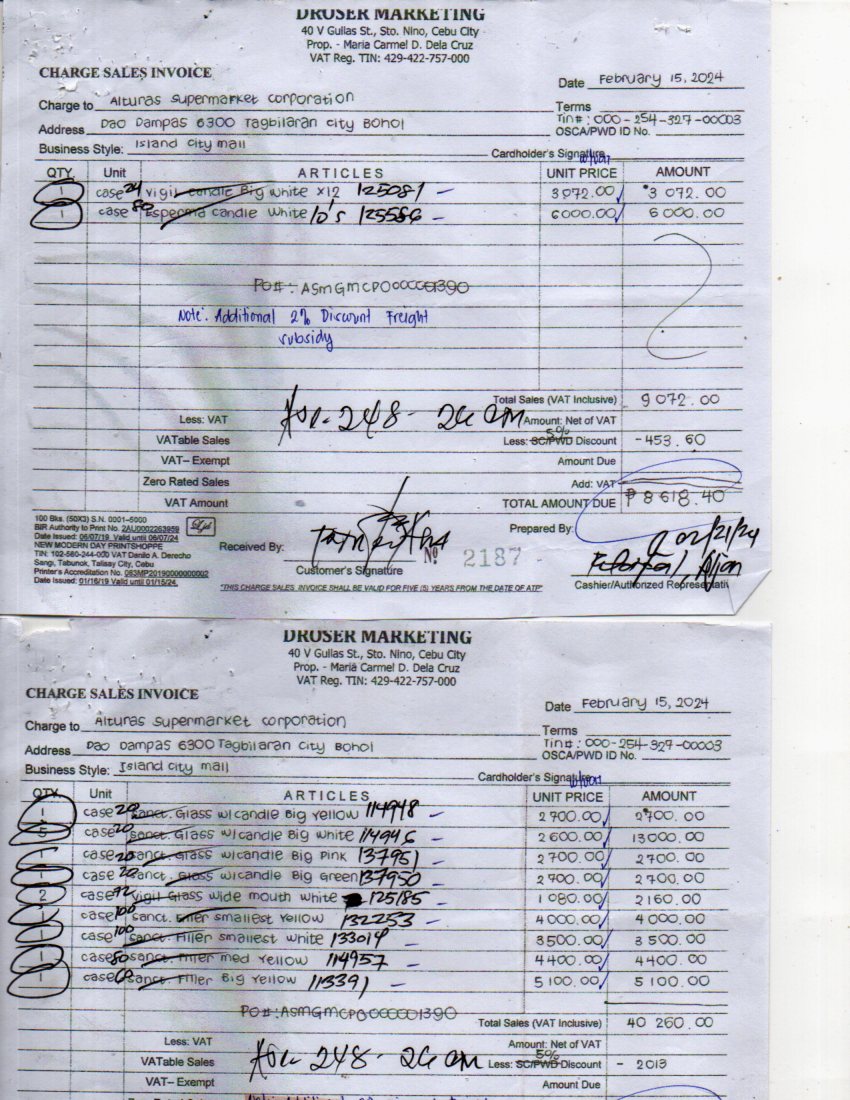 DROSER MARKETING
40 V Gullas St., Sto. Nino, Cebu City
Prop. - Maria Carmel D. Dela Cruz
VAT Reg. TIN: 429-422-757-000
CHARGE SALES INVOICE
Date February 15, 2024
Charge to Alturas Supermarket Corporation
Terms
Tin#: 000-254-327-00003
Address Dao Dampas 6300 Tagbilaran City Bohol
OSCA/PWD ID No.
Business Style: Island City Mall
Cardholder's Signature
QTY. Unit ARTICLES UNIT PRICE AMOUNT
1 case 24 Vigil candle Big White x12 125081 - 3072.00 3 072.00
1 case 80 Esperma candle White 10's 125586 - 6000.00 6 000.00
PO#: ASMGMCPO000001390
Note: Additional 2% Discount Freight
subsidy
Total Sales (VAT Inclusive) 9 072.00
Less: VAT
248 - Amount: Net of VAT
VATable Sales
5%
Less: SC/PWD Discount -453.60
VAT– Exempt
Amount Due
Zero Rated Sales
Add: VAT
VAT Amount
TOTAL AMOUNT DUE ₱ 8 618.40
100 Bks. (50X3) S.N. 0001–5000
BIR Authority to Print No. 2AU0002263959
Date Issued: 06/07/19 Valid until 06/07/24
NEW MODERN DAY PRINTSHOPPE
TIN: 102-560-244-000 VAT Danilo A. Derecho
Sangi, Tabunok, Talisay City, Cebu
Printer's Accreditation No. 083MP20190000000002
Date Issued: 01/16/19 Valid until 01/15/24
Received By:
Customer's Signature
No 2187
Prepared By:
02/21/24
Cashier/Authorized Representati
"THIS CHARGE SALES INVOICE SHALL BE VALID FOR FIVE (5) YEARS FROM THE DATE OF ATP"
DROSER MARKETING
40 V Gullas St., Sto. Nino, Cebu City
Prop. - Maria Carmel D. Dela Cruz
VAT Reg. TIN: 429-422-757-000
CHARGE SALES INVOICE
Date February 15, 2024
Charge to Alturas Supermarket Corporation
Terms
Tin#: 000-254-327-00003
Address Dao Dampas 6300 Tagbilaran City Bohol
OSCA/PWD ID No.
Business Style: Island City Mall
Cardholder's Signature
QTY. Unit ARTICLES UNIT PRICE AMOUNT
1 case 20 Sanct. Glass w/candle Big Yellow 114948 - 2700.00 2700.00
5 case 20 Sanct. Glass w/candle Big White 114946 - 2600.00 13000.00
1 case 20 Sanct. Glass w/candle Big Pink 137951 - 2700.00 2700.00
1 case 20 Sanct. Glass w/candle Big Green 137950 - 2700.00 2700.00
2 case 72 Vigil Glass wide mouth white 125185 - 1080.00 2160.00
1 case 100 Sanct. Filler smallest Yellow 132253 - 4000.00 4000.00
1 case 100 Sanct. Filler smallest White 133019 - 3500.00 3500.00
1 case 80 Sanct. Filler Med Yellow 114957 - 4400.00 4400.00
1 case 60 Sanct. Filler Big Yellow 113391 - 5100.00 5100.00
PO#: ASMGMCPO000001390
Total Sales (VAT Inclusive) 40 260.00
Less: VAT
Amount: Net of VAT
VATable Sales
248 -
5%
Less: SC/PWD Discount - 2013
VAT– Exempt
Amount Due